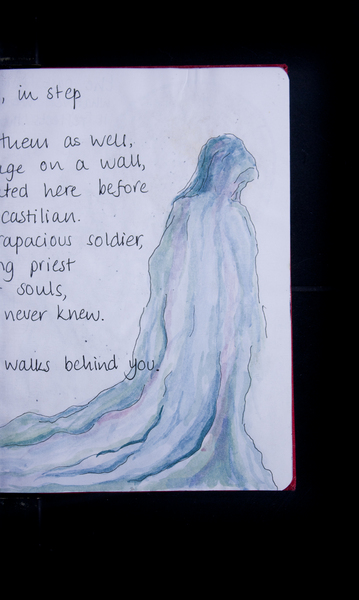 , in step
them as well,
age on a wall,
ted here before
castilian.
rapacious soldier,
ng priest
souls,
never knew.
walks behind you.